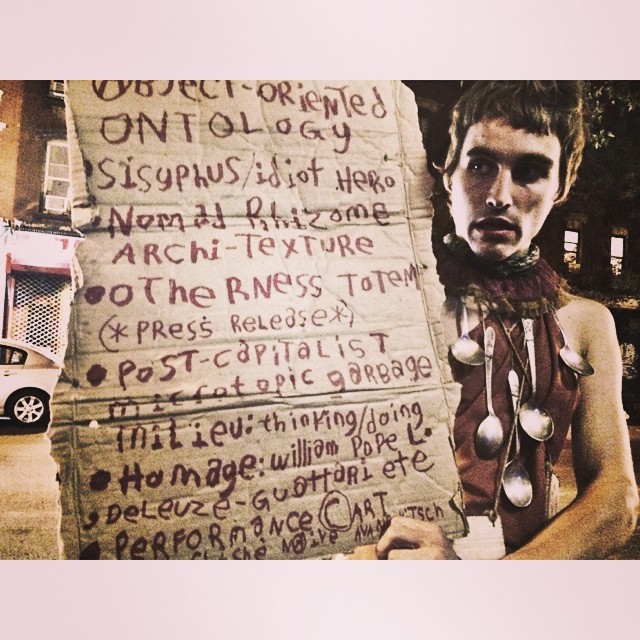 OBJECT-ORIENTED
ONTOLOGY
SISYPHUS/idiot HERO
Nomad Rhizome
ARCHi-TEXTURE
OTHERNESS TOTEM
(*PRESS RELEASE*)
POST-CAPITALIST
microtopic garbage
milieu: thinking/doing
Homage: william Pope L.
DELEUZE-GUATTARI ETE
PERFORMANCE © ART
NAIVE